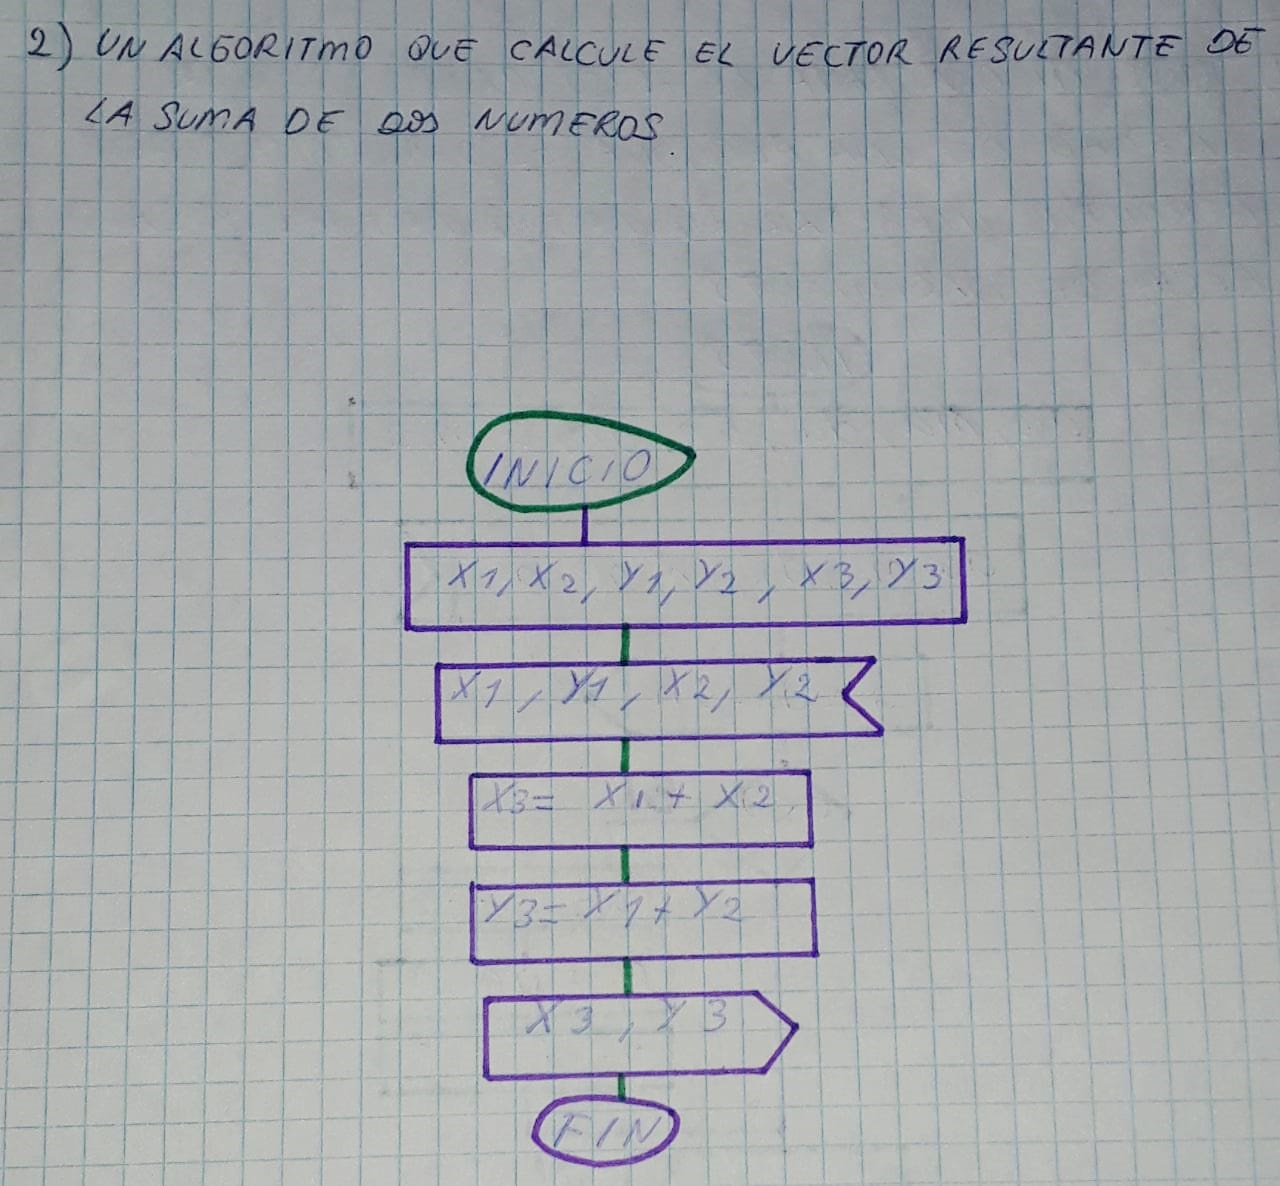 2) UN ALGORITMO QUE CALCULE EL VECTOR RESULTANTE DE
LA SUMA DE DOS NUMEROS.
INICIO
X1, X2, Y1, Y2, X3, Y3
X1, Y1, X2, Y2
X3= X1+ X2
Y3= X1+ Y2
X3, Y3
FIN